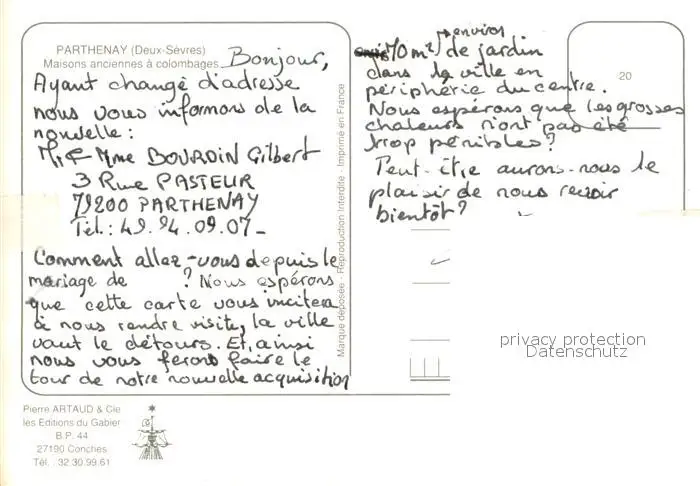 PARTHENAY (Deux-Sèvres)
Maisons anciennes à colombages
Bonjour,
Ayant changé d'adresse
nous vous informons de la
nouvelle :
Mr & Mme BOURDIN Gilbert
3 Rue PASTEUR
79200 PARTHENAY
Tél.: 49.94.09.07_
Comment allez-vous depuis le
mariage de ? Nous espérons
que cette carte vous incitera
à nous rendre visite, la ville
vaut le détours. Et, ainsi
nous vous ferons faire le
tour de notre nouvelle acquisition
environ
70 m² de jardin
dans la ville en
périphérie du centre.
Nous espérons que les grosses
chaleurs n'ont pas été
trop pénibles ?
Peut-être aurons-nous le
plaisir de nous revoir
bientôt ?
20
Marque déposée - Reproduction Interdite - Imprimé en France
privacy protection
Datenschutz
Pierre ARTAUD & Cie
les Editions du Gabier
B.P. 44
27190 Conches
Tél. : 32.30.99.61